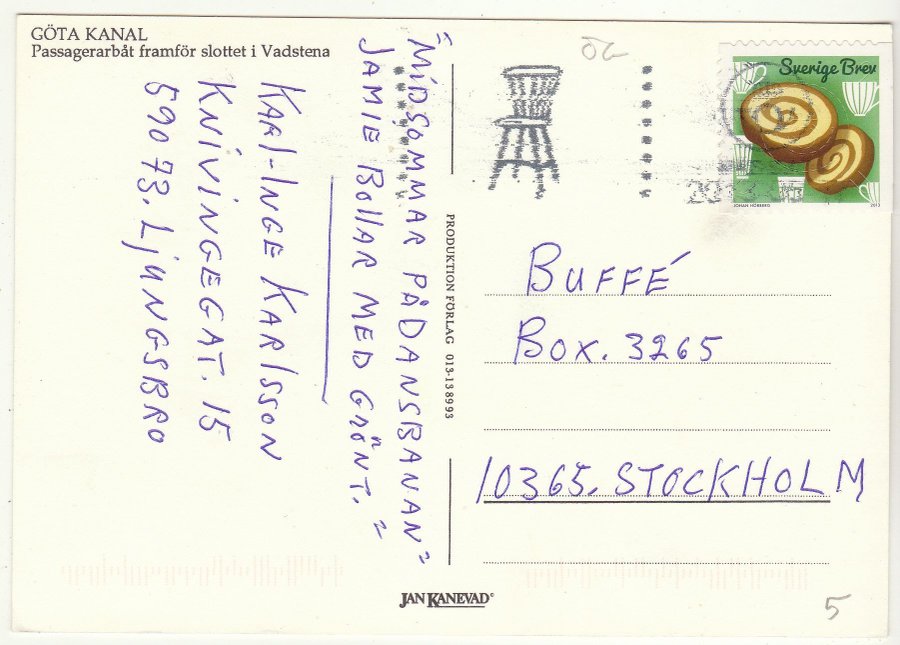 GÖTA KANAL
Passagerarbåt framför slottet i Vadstena
"MIDSOMMAR PÅ DANSBANAN"
JAMIE BOLLAR MED GRÖNT."
KARL-INGE KARLSSON
KNIVINGEGAT. 15
590 73. LJUNGSBRO
PRODUKTION FÖRLAG 013-138993
Sverige Brev
JOHAN HÖRBERG 2013
BUFFÉ
BOX. 3265
10365. STOCKHOLM
JAN KANEVAD©
5